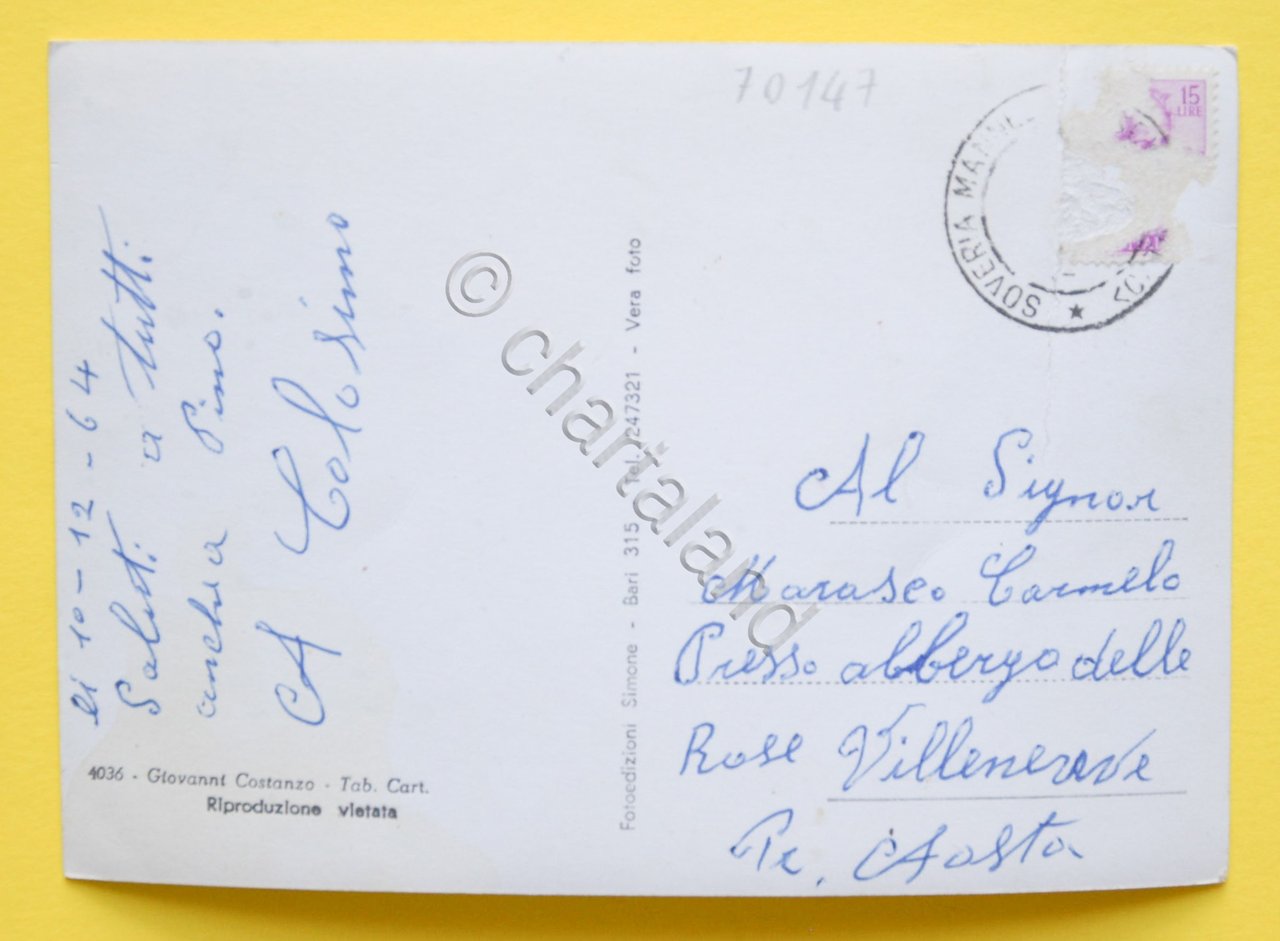 70147
15
LIRE
SOVERIA
li 10-12-64
Saluti a tutti
anchea Pino.
A Colosimo
4036 - Giovanni Costanzo - Tab. Cart.
Riproduzione vietata
Fotoedizioni Simone - Bari 315 Tel. 247321 - Vera foto
© chartaland
Al Signor
Marasco Carmelo
Presso albergo delle
Rose Villeneuve
Pr. Aosta